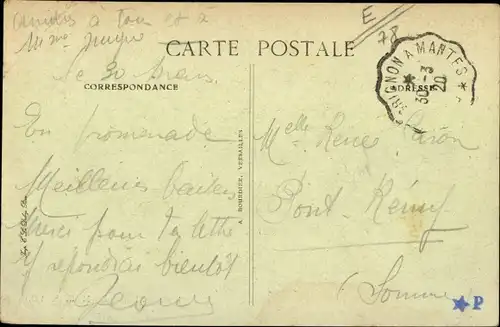 Amitiés à tous et à
Mme
CARTE POSTALE
E
78
Le 30 Mars
CORRESPONDANCE
ADRESSE
GRIGNON A MANTES *
30 - 3
20
En promenade
Meilleurs baisers
Merci pour ta lettre
Y repondrai bientôt
A. BOURDIER, VERSAILLES
Melle Renée
Pont-Rémy
(Somme)
P